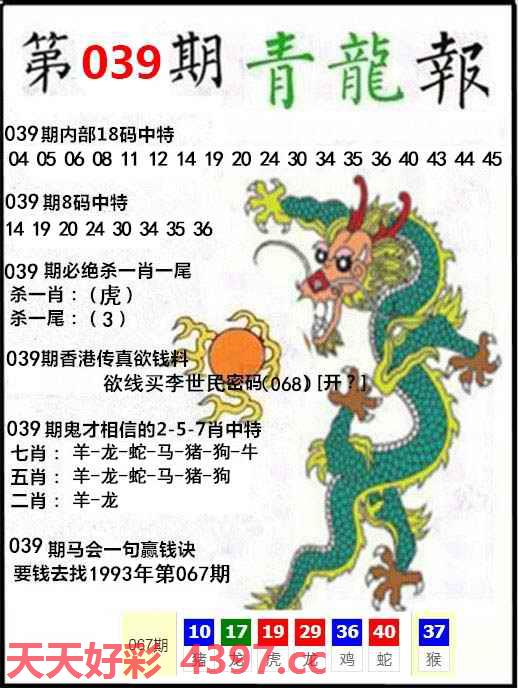 第039期青龍報
039期内部18码中特
04 05 06 08 11 12 14 19 20 24 30 34 35 36 40 43 44 45
039期8码中特
14 19 20 24 30 34 35 36
039 期必绝杀一肖一尾
杀一肖：（虎）
杀一尾：（3）
039期香港传真欲钱料
欲线买李世民密码(068) [开？]
039期鬼才相信的2-5-7肖中特
七肖： 羊-龙-蛇-马-猪-狗-牛
五肖： 羊-龙-蛇-马-猪-狗
二肖： 羊-龙
039期马会一句赢钱诀
要钱去找1993年第067期
067期 10 17 19 29 36 40 37
猪 龙 虎 龙 鸡 蛇 猴
天天好彩 4397.cc